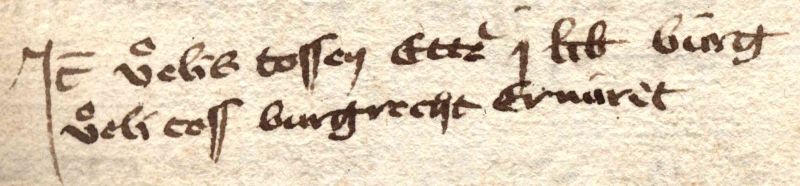 It vͦelis tossen Etter j lib burg
vͦeli toss burgrecht Ernúwret